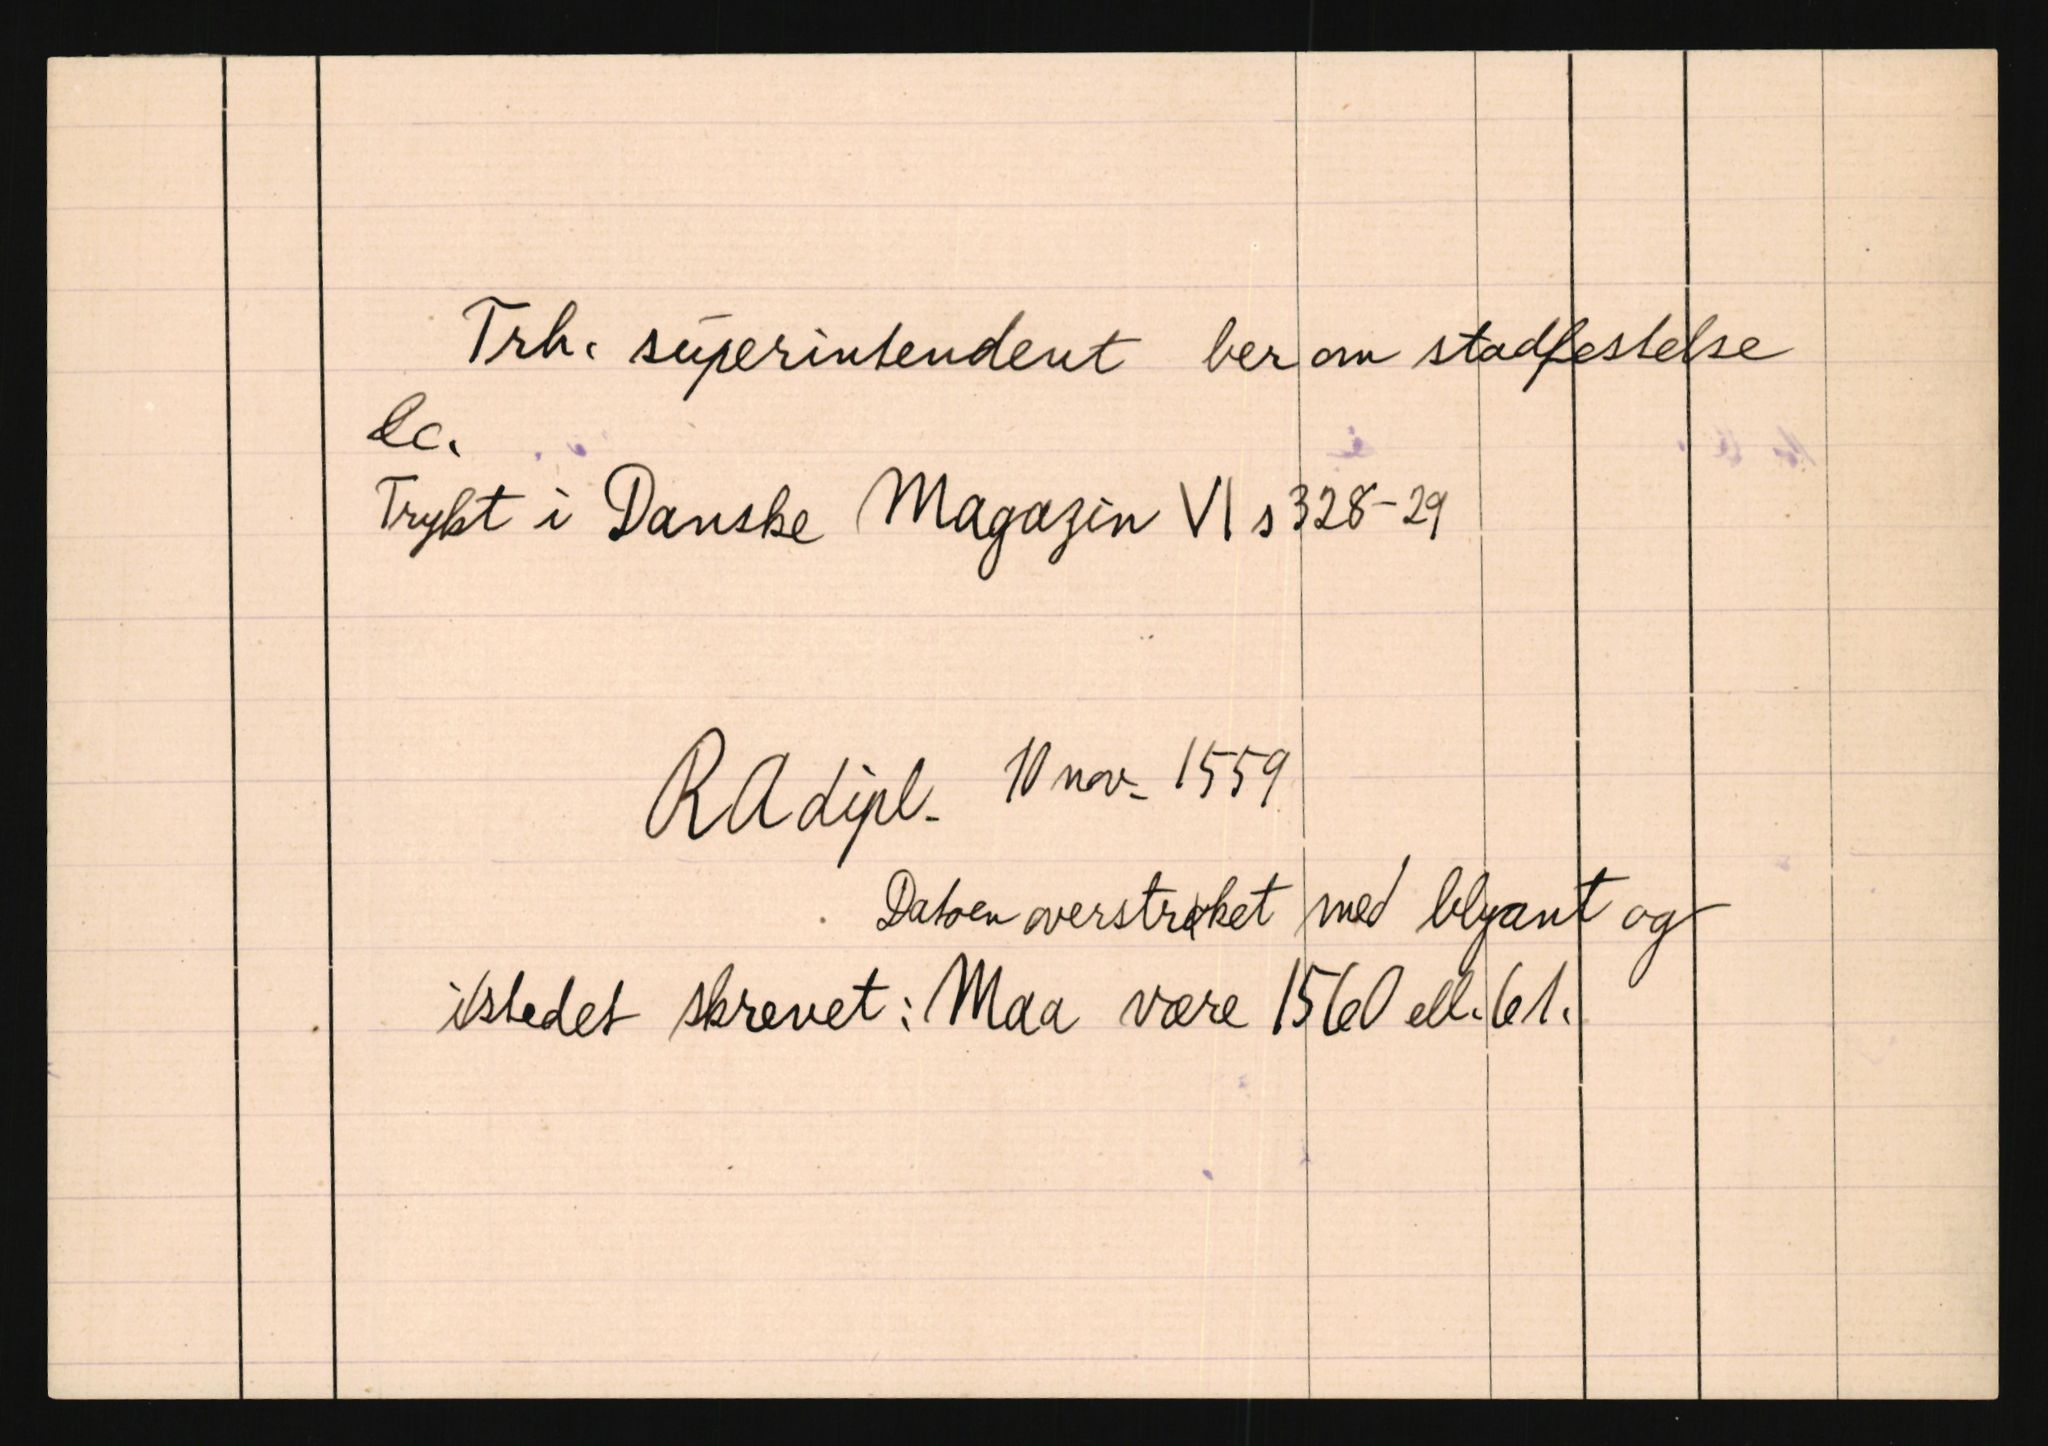 Trh. superintendent ber om stadfestelse
&c.
Trykt i Danske Magazin VI s 328-29
RA dipl. 10 nov. 1559
Datoen overstrøket med blyant og
istedet skrevet: Maa være 1560 ell. 61.